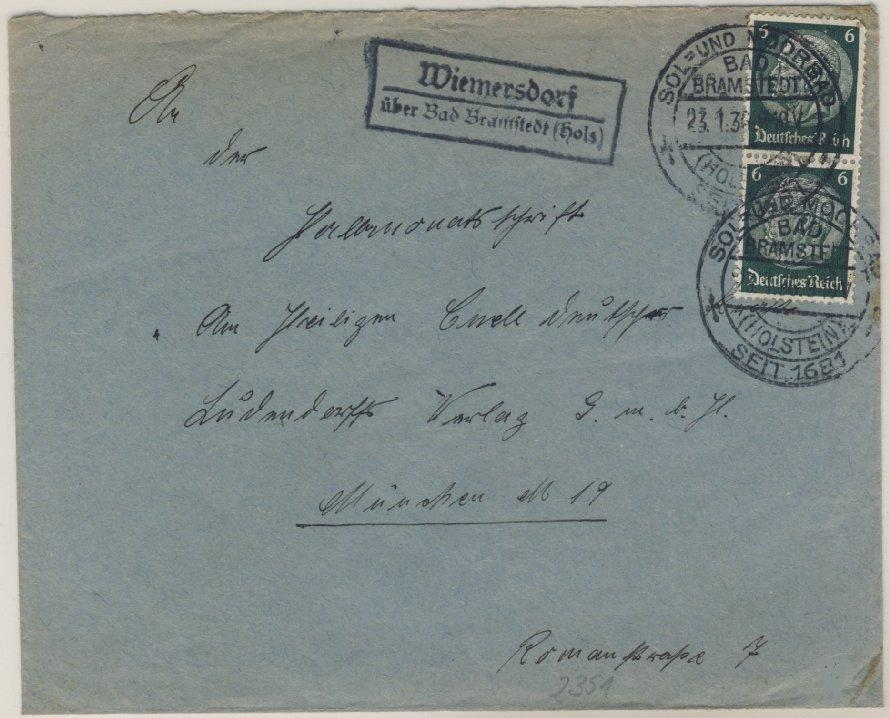 An
der
Halbmonatsschrift
Am Heiligen Quell Deutscher
Ludendorffs Verlag G. m. b. H.
München M 19
Romanstraße 7
2351
Wiemersdorf
über Bad Bramstedt (Hols)
SOL= UND MOORBAD
BAD
BRAMSTEDT
23.1.36
(HOL
6 6
Deutsches Reich
6 6
Deutsches Reich
SOL= UND MOO BAD
BAD
BRAMSTE
(HOLSTEIN)
SEIT 1681